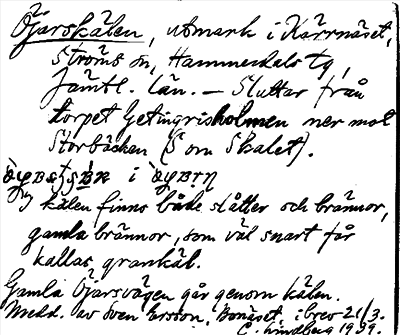 Öjarskälen, utmark i Kärrnäset,
Ströms sn, Hammerdals tg,
Jämtl. län. – Sluttar från
torpet Getingrisholmen ner mot
Storbäcken (S om Skalet).
i
I kälen finns både slåtter och brännor,
gamla brännor, som väl snart får
kallas grankäl.
Gamla Öjarsvägen går genom kälen.
Medd. av Sven Ersson, Bonäset, i brev 21/3.
C. Lindberg 1939.